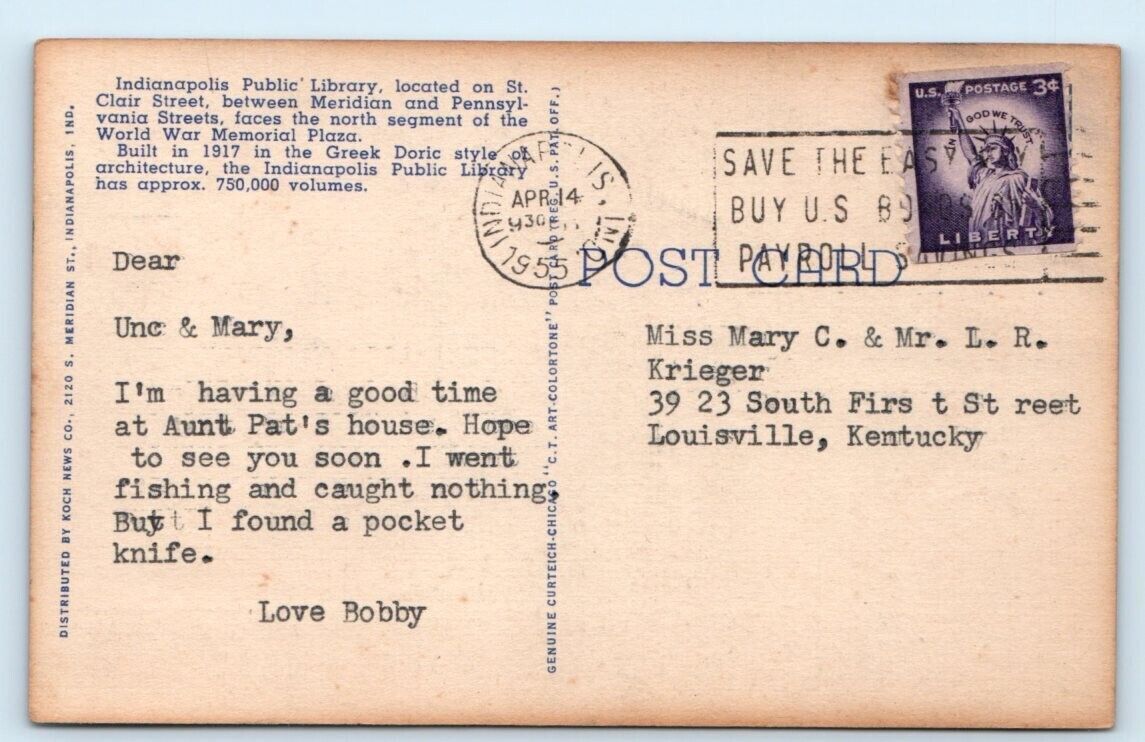 Indianapolis Public Library, located on St.
Clair Street, between Meridian and Pennsyl-
vania Streets, faces the north segment of the
World War Memorial Plaza.
Built in 1917 in the Greek Doric style of
architecture, the Indianapolis Public Library
has approx. 750,000 volumes.
DISTRIBUTED BY KOCH NEWS CO., 2120 S. MERIDIAN ST., INDIANAPOLIS, IND.
Dear
Unc & Mary,
I'm having a good time
at Aunt Pat's house. Hope
to see you soon .I went
fishing and caught nothing.
But I found a pocket
knife.
Love Bobby
GENUINE CURTEICH-CHICAGO "C.T. ART-COLORTONE" POST CARD (REG. U.S. PAT. OFF.)
INDIANAPOLIS,
APR 14
930
1955
SAVE THE EASY
BUY U.S
PAYROLL
U.S. POSTAGE 3¢
IN GOD WE TRUST
LIBERTY
POST CARD
Miss Mary C. & Mr. L. R.
Krieger
39 23 South Firs t St reet
Louisville, Kentucky